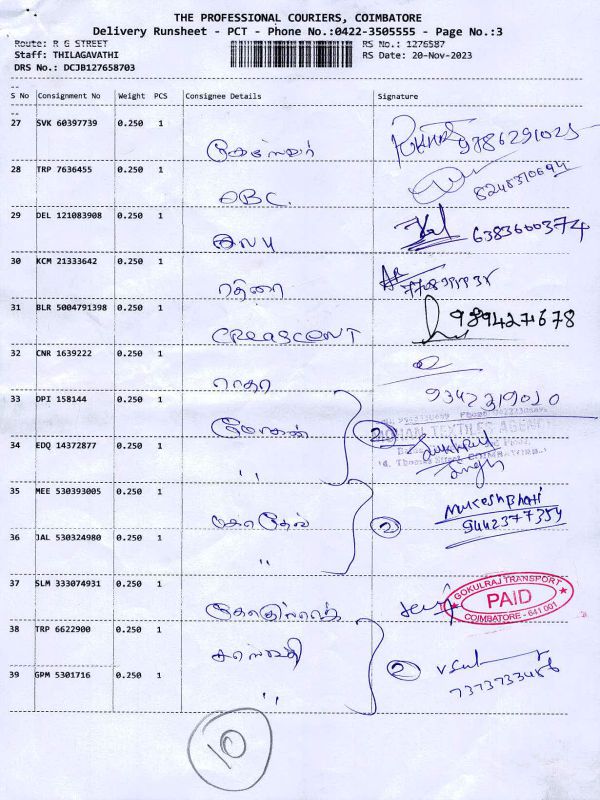 THE PROFESSIONAL COURIERS, COIMBATORE
Delivery Runsheet - PCT - Phone No.:0422-3505555 - Page No.:3
Route: R G STREET RS No.: 1276587
Staff: THILAGAVATHI RS Date: 20-Nov-2023
DRS No.: DCJB127658703
S No Consignment No Weight PCS Consignee Details Signature
27 SVK 60397739 0.250 1
9786291025
28 TRP 7636455 0.250 1
ABC. 8248310694
29 DEL 121083908 0.250 1
6383600374
30 KCM 21333642 0.250 1
31 BLR 5004791398 0.250 1
CREASCENT 9894271678
32 CNR 1639222 0.250 1
ராதா 9342319010
33 DPI 158144 0.250 1
மோகன் 2
TEXTILES AGENC
34 EDQ 14372877 0.250 1
" Singh
35 MEE 530393005 0.250 1
Mukesh Bhati
2 9442377354
36 JAL 530324980 0.250 1
"
37 SLM 333074931 0.250 1
GOKULRAJ TRANSPORT
PAID
COIMBATORE - 641 001
38 TRP 6622900 0.250 1
2
39 GPM 5301716 0.250 1
" 7373733486
10